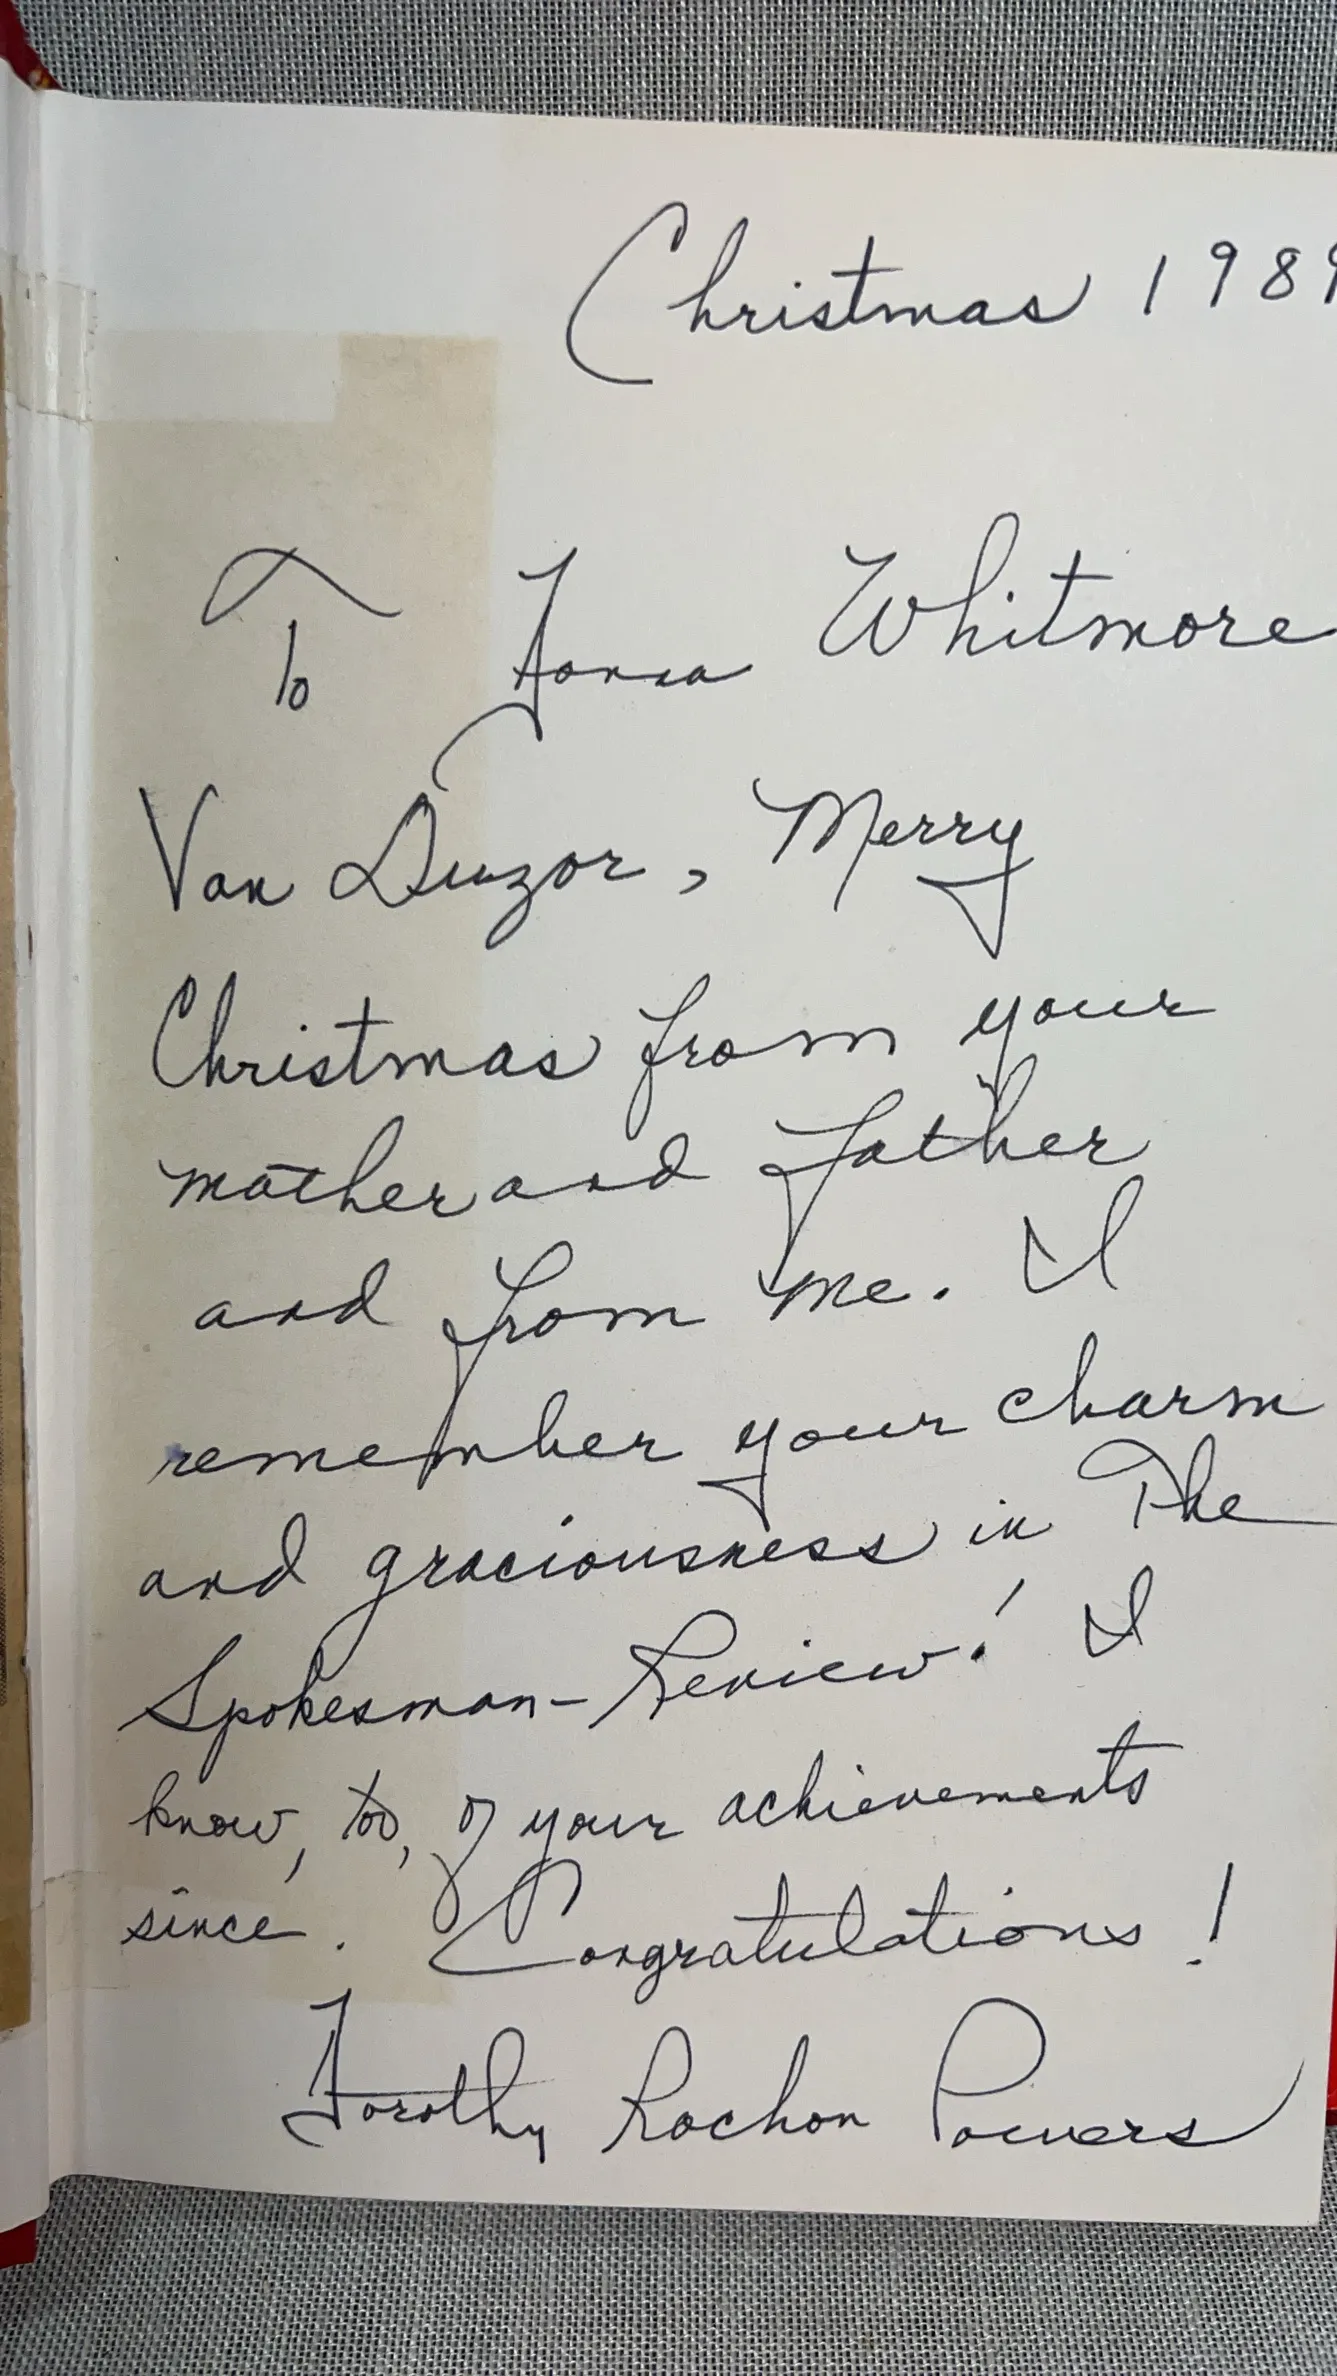 Christmas 1989
To Donna Whitmore
Van Duzor, Merry
Christmas from your
mother and father
and from me. I
remember your charm
and graciousness in The
Spokesman-Review! I
know, too, of your achievements
since. Congratulations!
Dorothy Rochon Powers